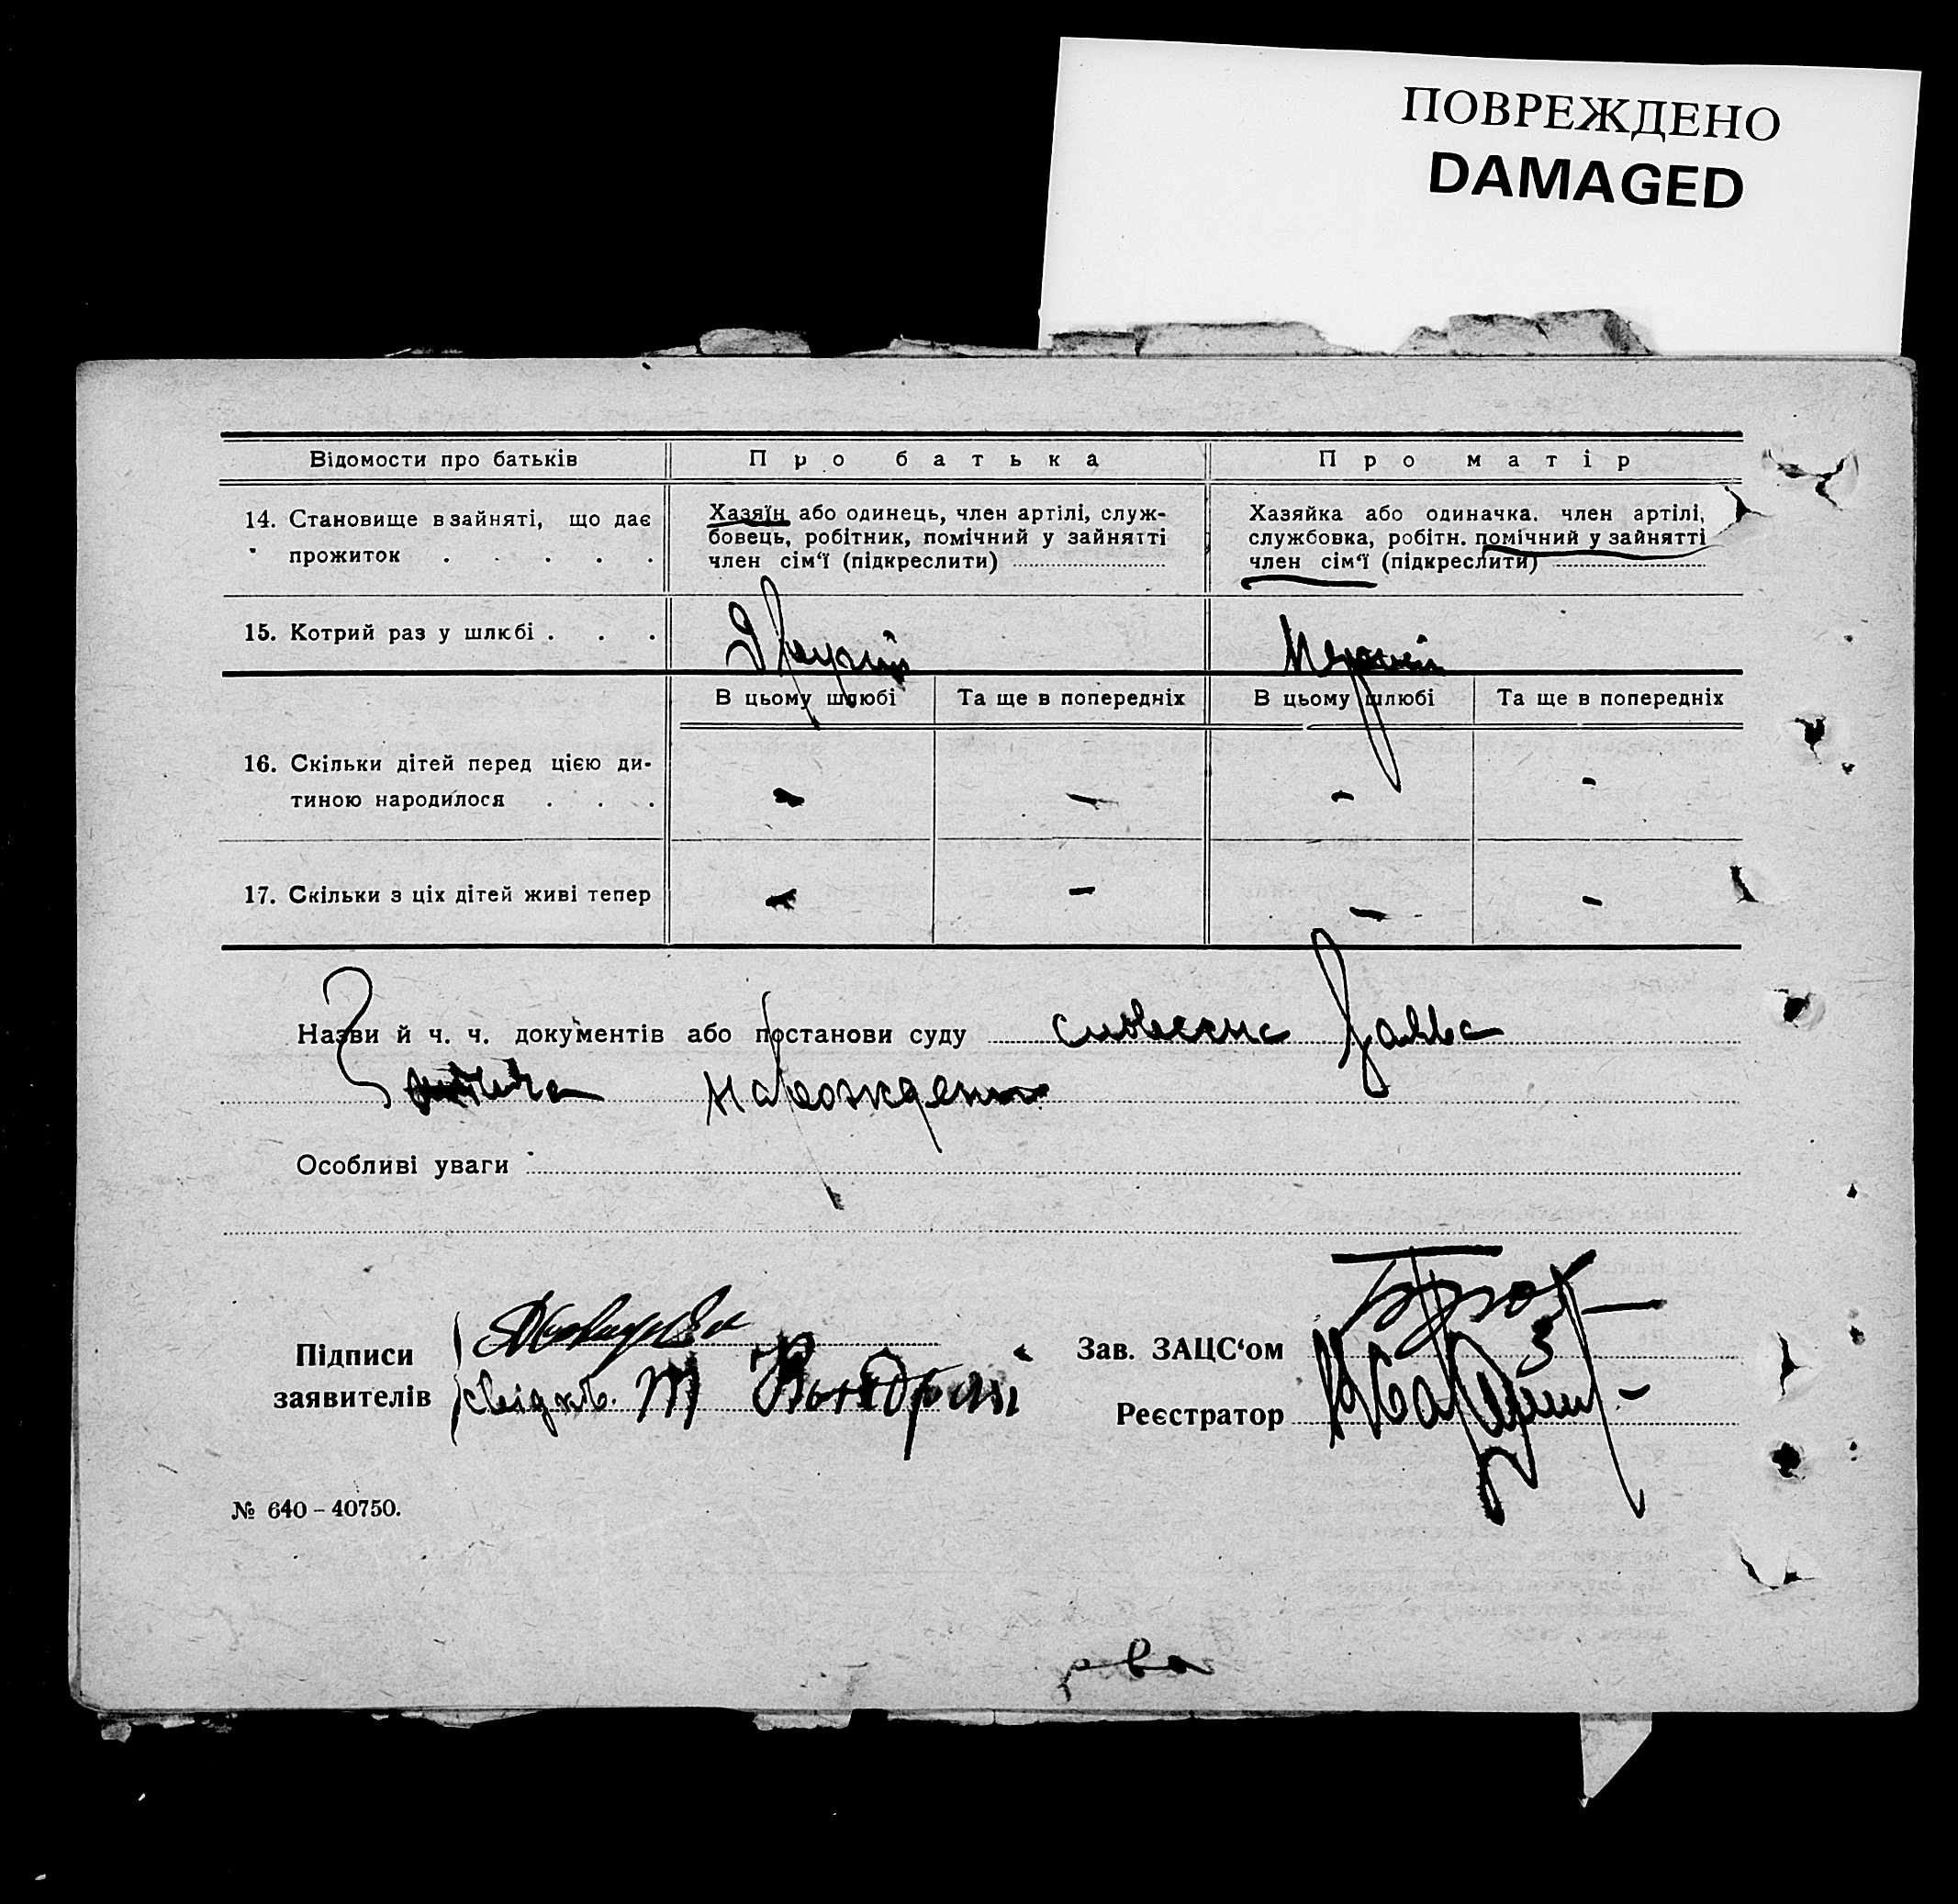 ПОВРЕЖДЕНО
DAMAGED
Відомости про батьків
Про батька
Про матір
14. Становище в зайняті, що дає
прожиток . . . . .
Хазяїн або одинець, член артілі, служ-
бовець, робітник, помічний у зайнятті
член сім‘ї (підкреслити)
Хазяйка або одиначка. член артілі,
службовка, робітн. помічний у зайнятті
член сім‘ї (підкреслити)
15. Котрий раз у шлюбі . . .
Другий
Первий
В цьому шлюбі
Та ще в попередніх
В цьому шлюбі
Та ще в попередніх
16. Скільки дітей перед цією ди-
тиною народилося . . .
- - - -
17. Скільки з ціх дітей живі тепер
- - - -
Назви й ч. ч. документів або постанови суду словесна заява
нарождення
Особливі уваги
Підписи
заявителів
свідків.
Зав. ЗАЦС‘ом
Реєстратор
№ 640 – 40750.